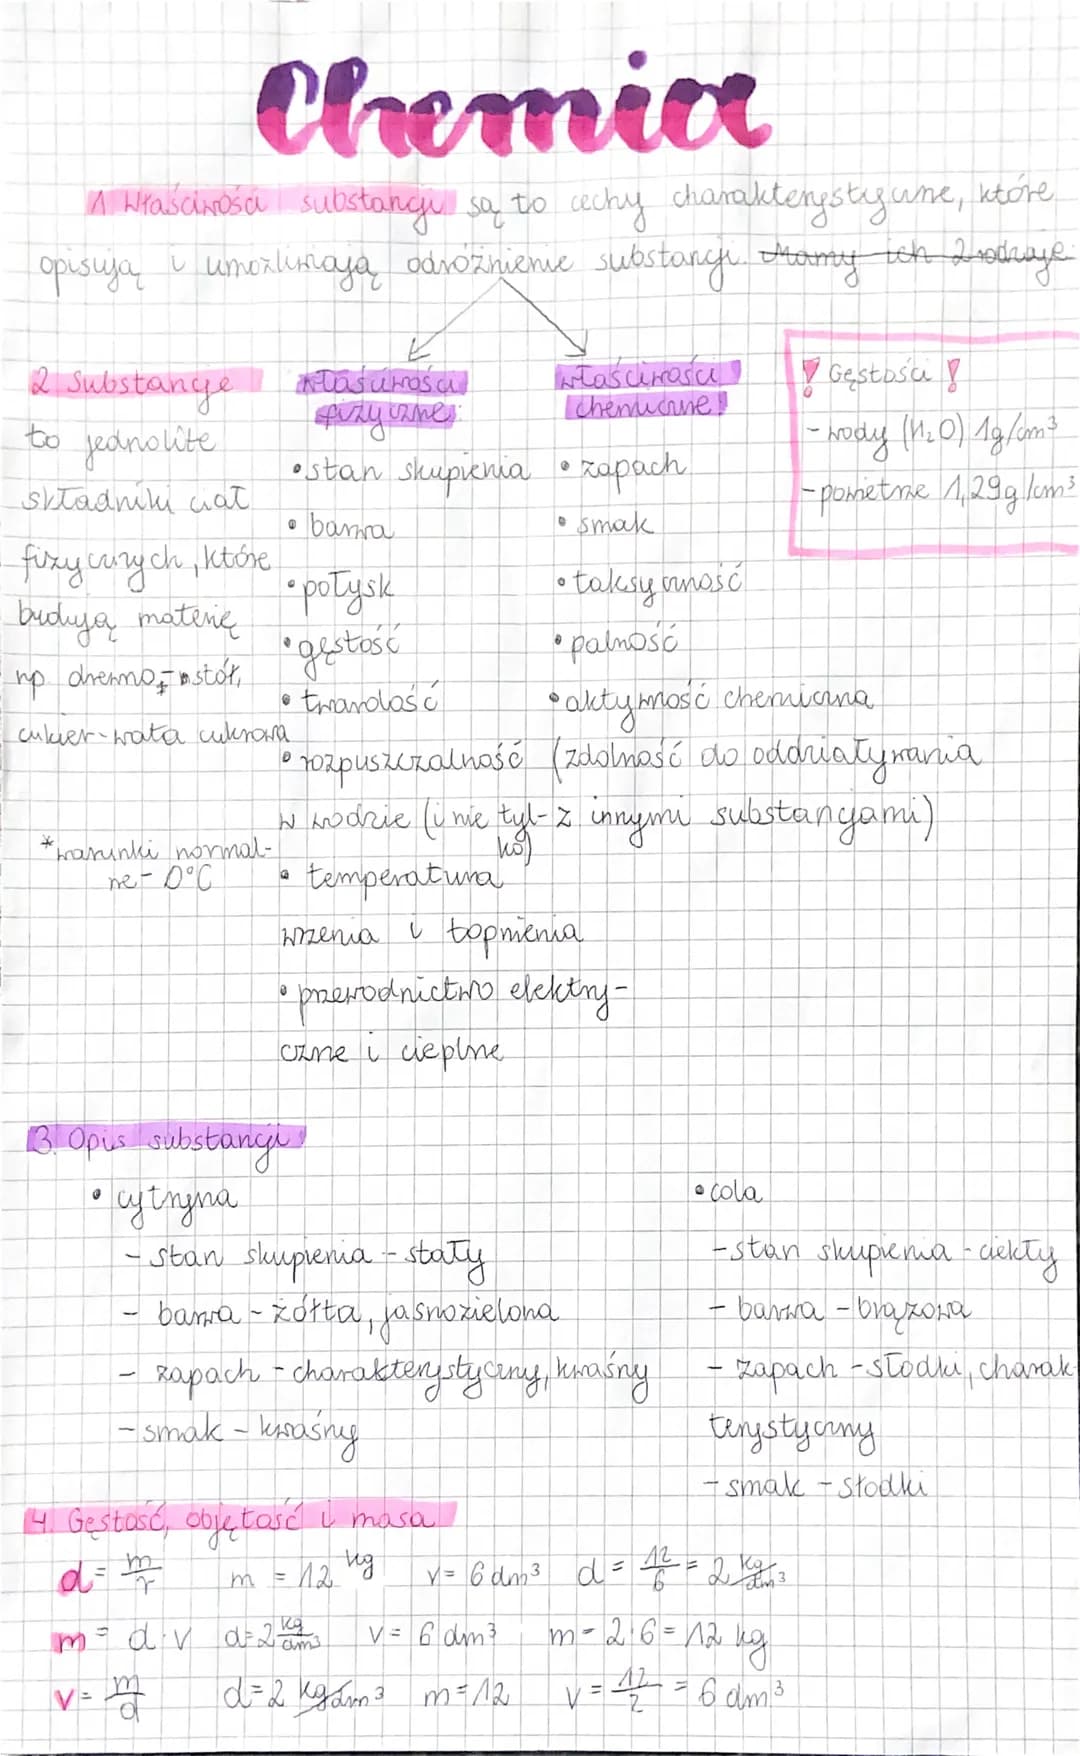 Chemia
1. Właściwości substancji są to cechy charakterystyczne, które
opisują i umożliwiają odróżnienie substancji. Mamy ich 2 rodzaje
2. Substancje
to jednolite
składniki ciał
fizycznych, które
budują materię
np. drewno - stół,
cukier-wata cukrowa
*warunki normal-
ne - 0°C
właściwości
fizyczne:
• stan skupienia
• barwa
• połysk
• gęstość
• twardość
• rozpuszczalność
w wodzie (i nie tyl-
ko)
• temperatura
wrzenia i topnienia
• przewodnictwo elektry-
czne i cieplne
właściwości
chemiczne:
• zapach
• smak
• toksyczność
• palność
• aktywność chemiczna
(zdolność do oddziaływania
z innymi substancjami)
! Gęstości !
- wody (H₂O) 1g/cm³
- powietrze 1,29g/cm³
3. Opis substancji
• cytryna
- stan skupienia - stały
- barwa - żółta, jasnozielona
- zapach - charakterystyczny, kwaśny
- smak - kwaśny
• cola
- stan skupienia - ciekły
- barwa - brązowa
- zapach - słodki, charak-
terystyczny
- smak - słodki
4. Gęstość, objętość i masa
d = m/v m = 12 kg v = 6 dm³ d = 12/6 = 2 kg/dm³
m = d·v d = 2 kg/dm³ v = 6 dm³ m = 2·6 = 12 kg
v = m/d d = 2 kg/dm³ m = 12 v = 12/2 = 6 dm³